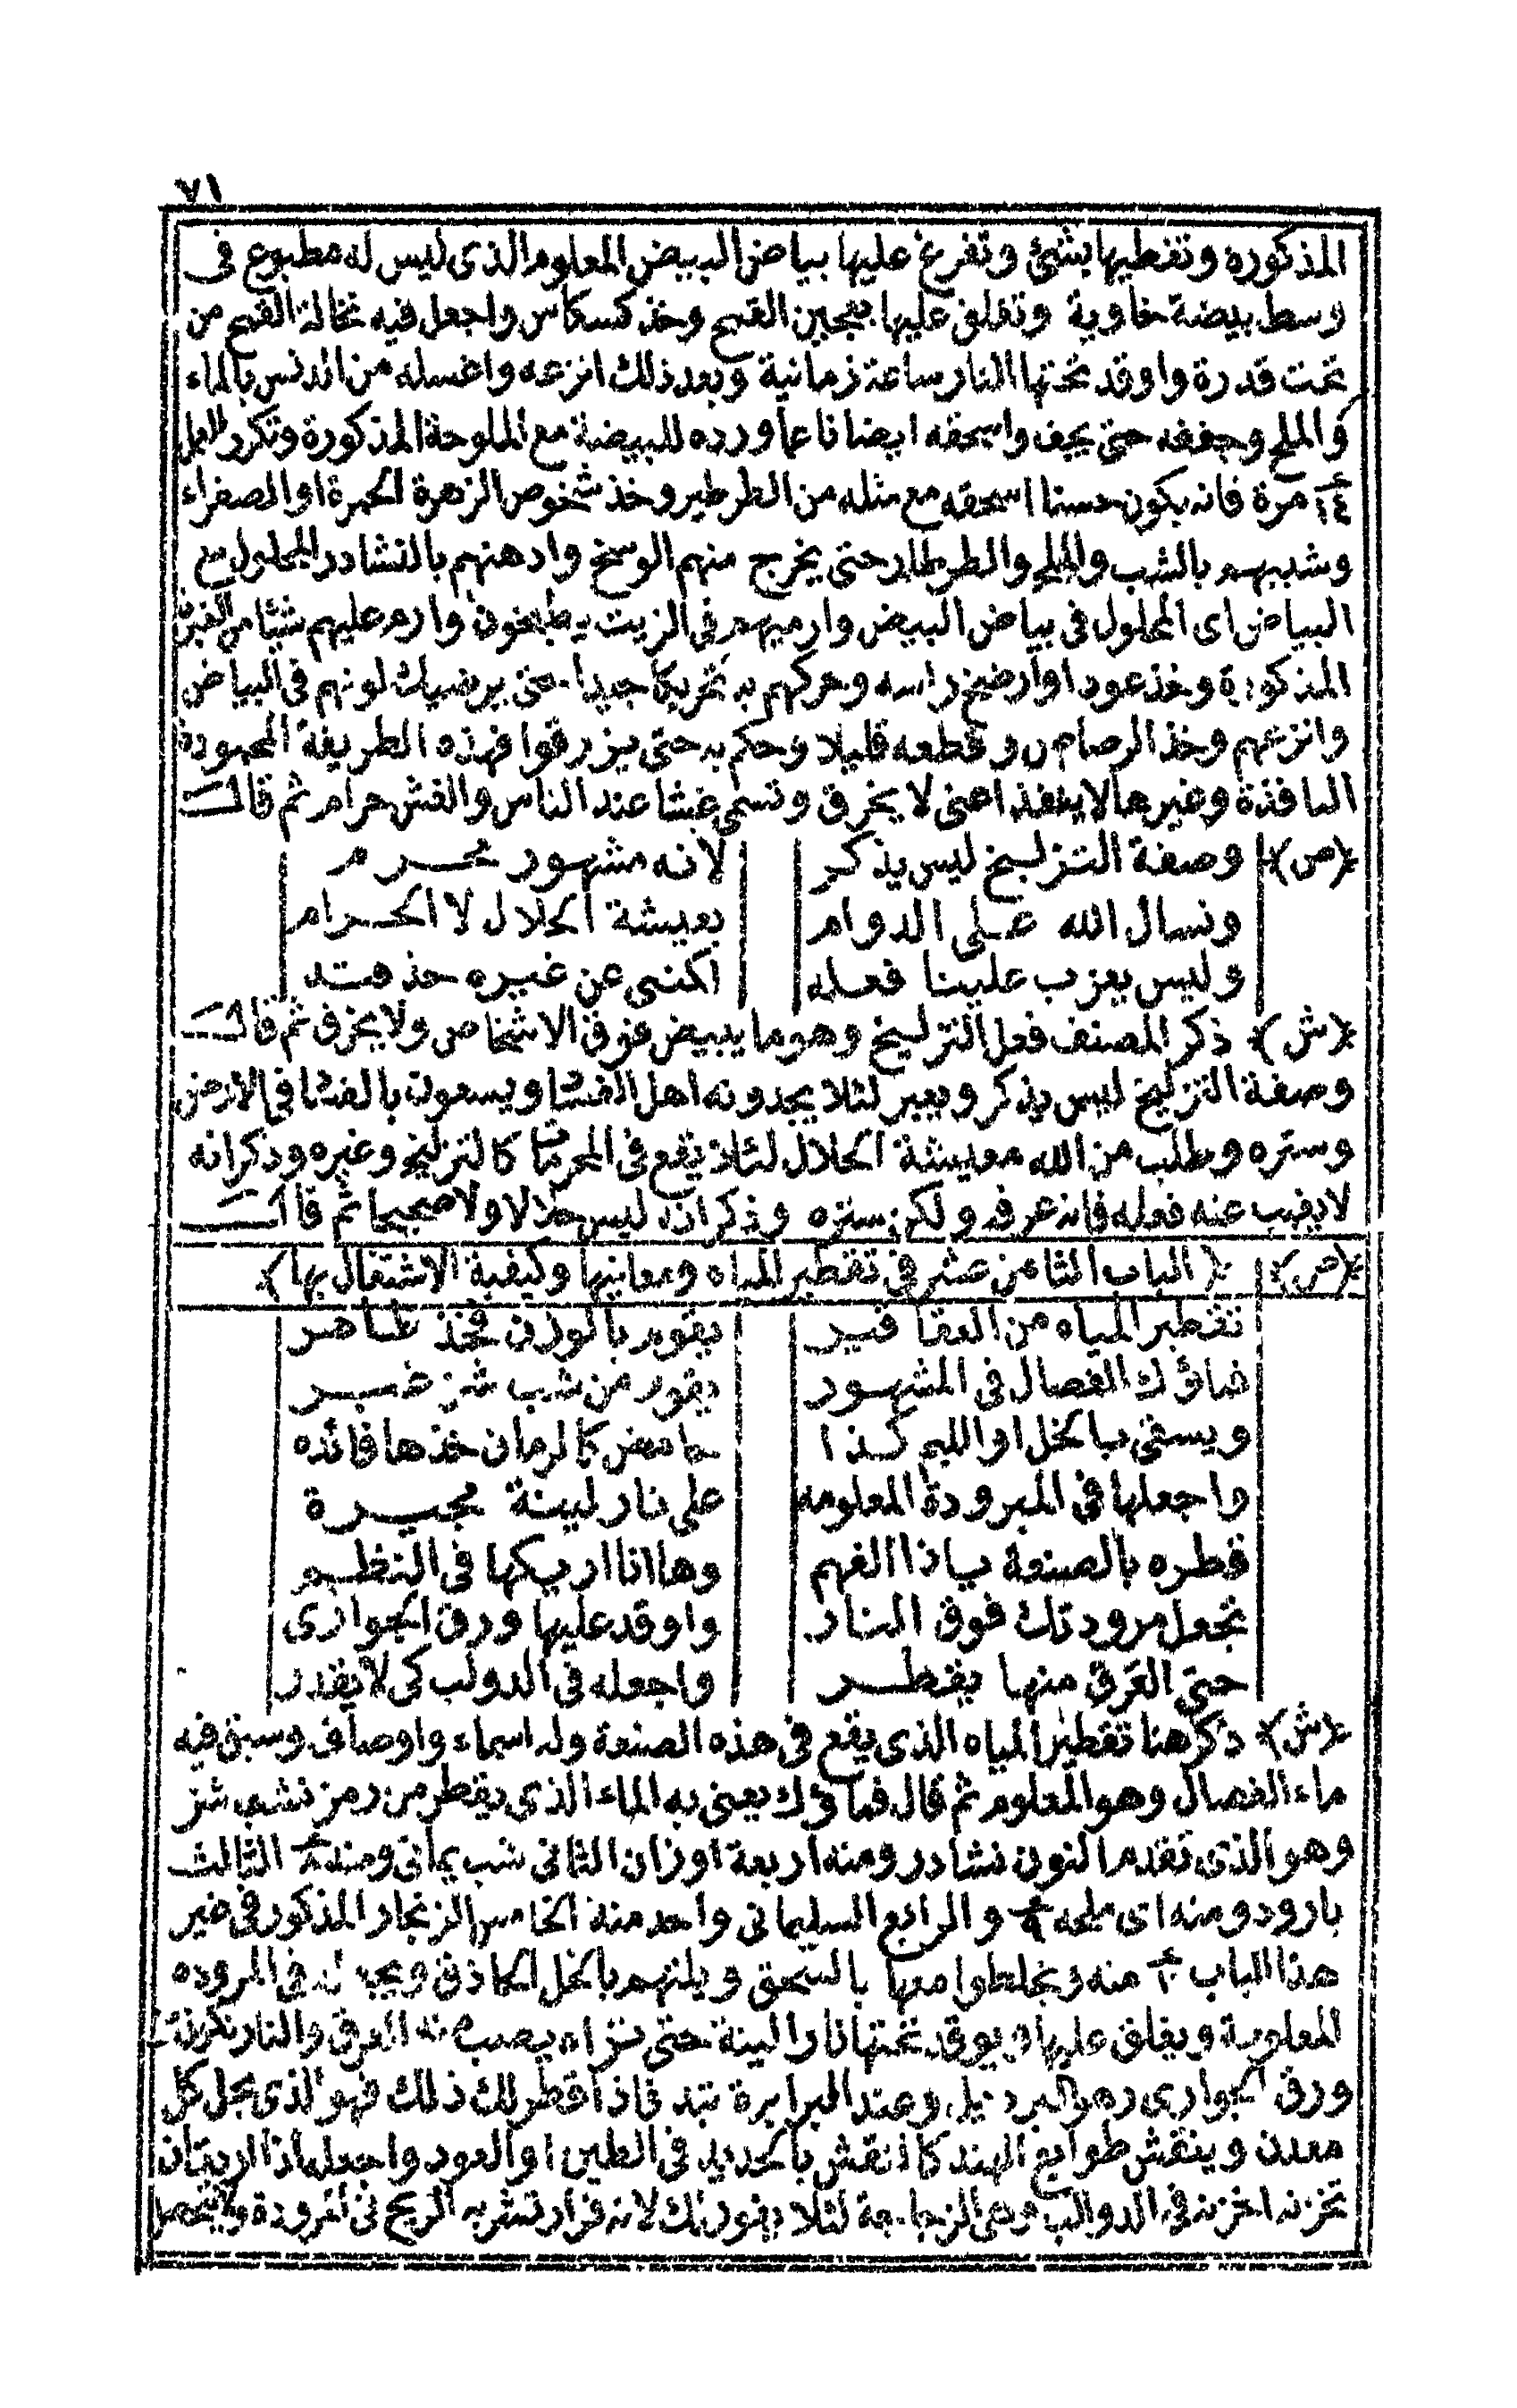 ٧١
المذكورة وتغطيها بشئ وتفرغ عليها بياض البيض المعلوم الذى ليس له مطبوع فى
وسط بيضة خاوية وتغلق عليها بعجين القمح وخذ كسكاس واجعل فيه نخالة القمح من
تحت قدرة واوقد تحتها النار ساعة زمانية وبعد ذلك انزعه واغسله من الدنس بالماء
والملح وجففه حتى يجف واسحقه ايضا ناعما ورده للبيضة مع الملوحة المذكورة وتكرر العمل
١٤ مرة فانه يكون حسنا اسحقه مع مثله من الطرطير وخذ شخوص الزهرة الحمرة او الصفراء
وشببهم بالشب والملح والطرطار حتى يخرج منهم الوسخ وادهنهم بالنشادر المحلول مع
البياض اى المحلول فى بياض البيض وارميهم فى الزيت يطبخون وارم عليهم شيئا من
المذكورة وخذ عودا وارضخ راسه وحركهم به تحريكا جيدا حتى يرضيك لونهم فى البياض
وانزعهم وخذ الرصاص وقطعه قليلا وحكم به حتى يزرقوا فهذه الطريقة المحمودة
النافذة وغيرها لا ينفذ اعنى لا يخرق وتسمى غشا عند الناس والغش حرام ثم قال
(ص) وصفة التزليخ ليس يذكر لانه مشهور محرم
ونسال الله على الدوام بعيشة الحلال لا الحرام
وليس يعزب علينا فعله اكنى عن غيره خذ
(ش) ذكر المصنف فعل التزليخ وهو ما يبيض فوق الاشخاص ولا يخرق ثم قال
وصفة التزليخ ليس يذكر ويعبر لئلا يجدونه اهل الفشا ويسعون بالفشا فى الارض
وستره وطلب من الله معيشة الحلال لئلا يقع فى المحرمات كالتزليخ وغيره وذكر انه
لا يغيب عنه فعله فانه عرفه ولكن ستره وذكر انه ليس حلالا ولا صحيحا ثم قال
(ص) (الباب الثامن عشر فى تقطير المياه ومعانيها وكيفية الاشتغال بها)
تقطير المياه من العقاقير يقوم بالوزن فخذ ظاهر
فماؤك الفصال فى المشهور يقور من شب شز خبير
ويسقى بالخل او الليم كذا حامض كالرمان خذها فائده
واجعلها فى المبرودة المعلومه على نار لينة مجيرة
قطره بالصنعة ياذا الفهم وها انا اريكها فى النظم
تجعل مرودتك فوق النار واوقد عليها ورق الجوارى
حتى العرق منها يقطر واجعله فى الدولب كى لا يقدر
(ش) ذكر هنا تقطير المياه الذى يقع فى هذه الصنعة وله اسماء واوصاف وسبق فيه
ماء الفصال وهو المعلوم ثم قال فماؤك يعنى به الماء الذى يقطر من رمز نشب شز
وهو الذى تقدم النون نشادر ومنه اربعة اوزان الثانى شب يمانى ومنه ٨ الثالث
بارود ومنه اى ملحه ٩ والرابع السليمانى واحد منه الخامس الزنجار المذكور فى غير
هذا الباب منه ويخلطوا معها بالسحق ويلتهم بالخل الحاذق ويجعله فى المروده
المعلومة ويغلق عليها ويوقد تحتها نارا لينة حتى تراه يصب منه العرق والنار تكون
ورق الجوارى وعند البرابرة فاذا قطر لك ذلك فهو الذى يحل كل
معدن وينقش طوابع الهند كما نقش بالحديد فى الطين او العود واجعله اذا اريتان
تخزنه اخزنه فى الدوالب وهى الزجاجة لئلا يفور لك لانه فرار تشربه الريح فى المرودة